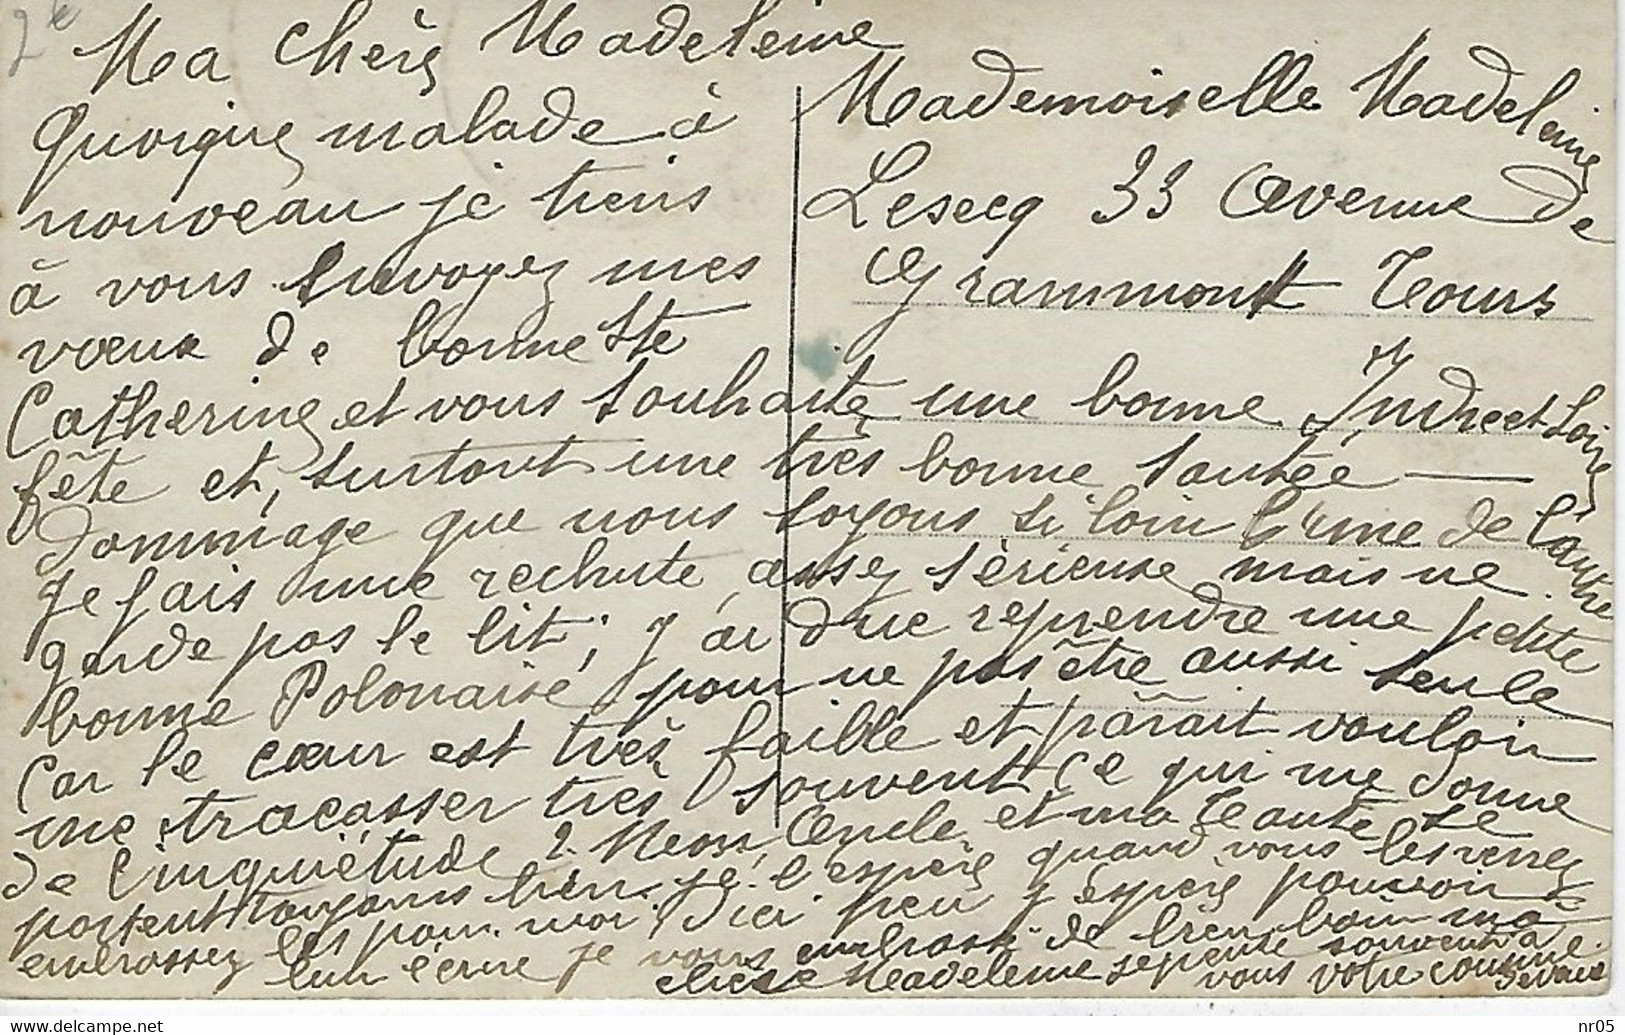 Ma chère Madeleine
Quoique malade à
nouveau je tiens
à vous envoyez mes
vœux de bonne Ste
Catherine et vous souhaite une bonne
fête et, surtout une très bonne santée —
dommage que nous soyons si loin l'une de l'autre
Je fais une rechute assez sérieuse mais ne
garde pas le lit; j'ai due reprendre une petite
bonne Polonaise pour ne pas être aussi seule
Car le cœur est très faible et parait vouloir
me tracasser très souvent, ce qui me donne
de l'inquiétude ? Mon Oncle et ma Tante se
portent toujours bien je l'espère quand vous les verrez
embrassez les pour moi. D'ici peu j'espère pouvoir
leur écrire je vous embrasse de bien loin ma
chère Madeleine je pense souvent à
vous votre cousine
Mademoiselle Madeleine
Lesecq 33 Avenue de
Grammont Tours
Indre et Loire
www.delcampe.net
nr05